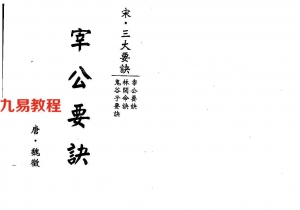 宋·三大要訣
宰公要訣
林開命訣
鬼谷子要訣
宰公要訣
唐·魏徵
九易教程